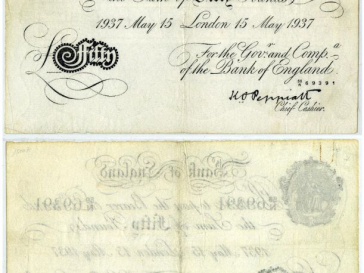 the Sum of Fifty Pounds
1937 May 15 London 15 May 1937
£ Fifty
For the Govr. and Compa.
of the Bank of England
69391
K O Peppiatt
Chief Cashier.
Bank of England
69391 to pay the Bearer 69391
the Sum of Fifty Pounds
1937 May 15 London 15 May 1937
Fifty